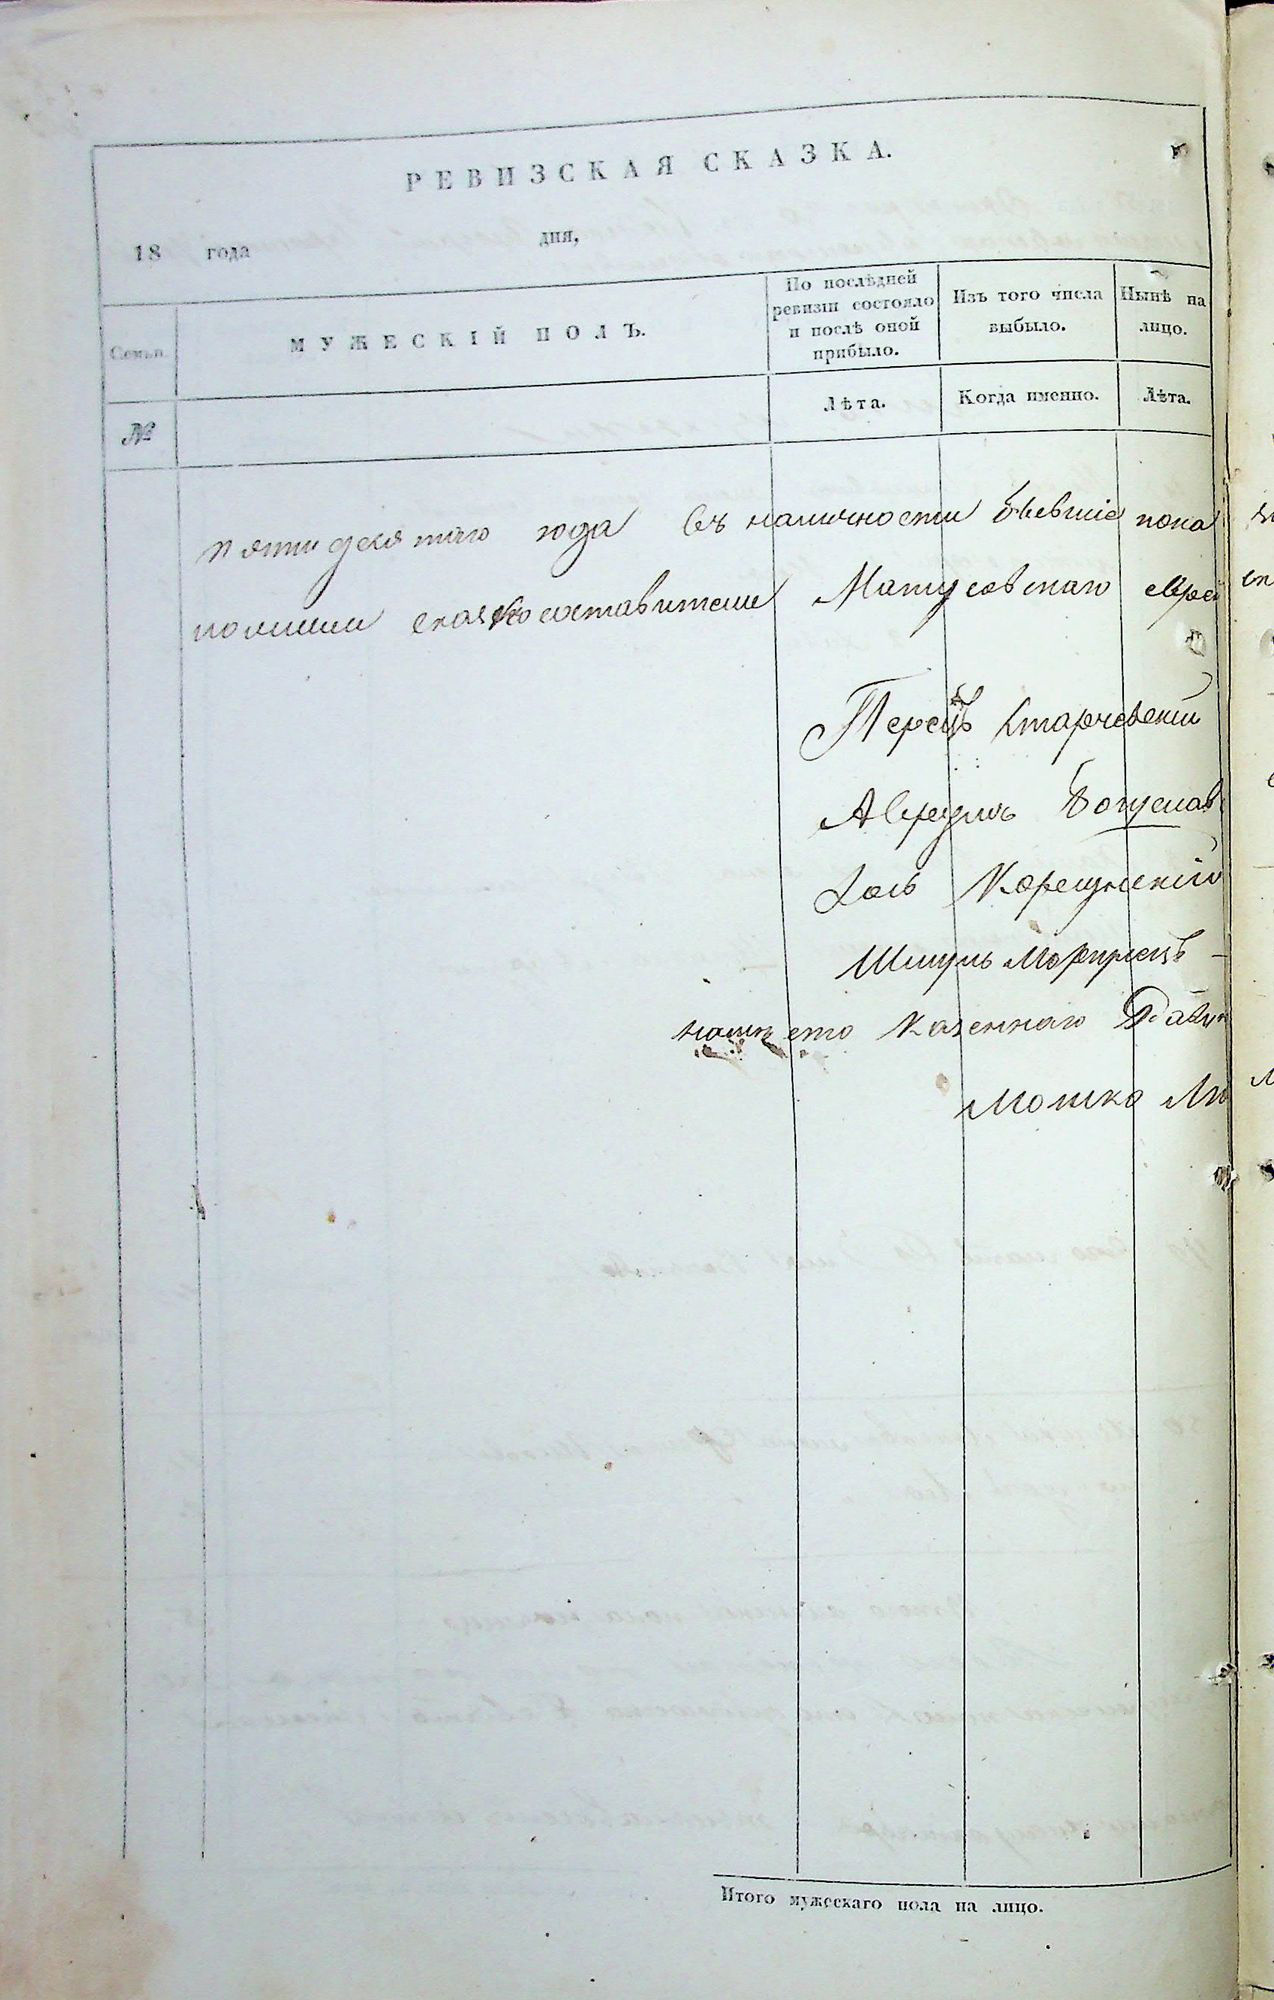 РЕВИЗСКАЯ СКАЗКА.
18 года дня,
Семьи.
МУЖЕСКІЙ ПОЛЪ.
По послѣдней ревизіи состояло и послѣ оной прибыло.
Изъ того числа выбыло.
Нынѣ на лицо.
№
Лѣта.
Когда именно.
Лѣта.
пятидесятаго года въ наличности бывшіе пока
сказкосоставители Матусовскаго евреи
Перецъ Старчевскій
Аврумъ Богуслав
Іось Корсунскій
Шмуль
казеннаго Равин
Мошко Ли
Итого мужескаго пола на лицо.